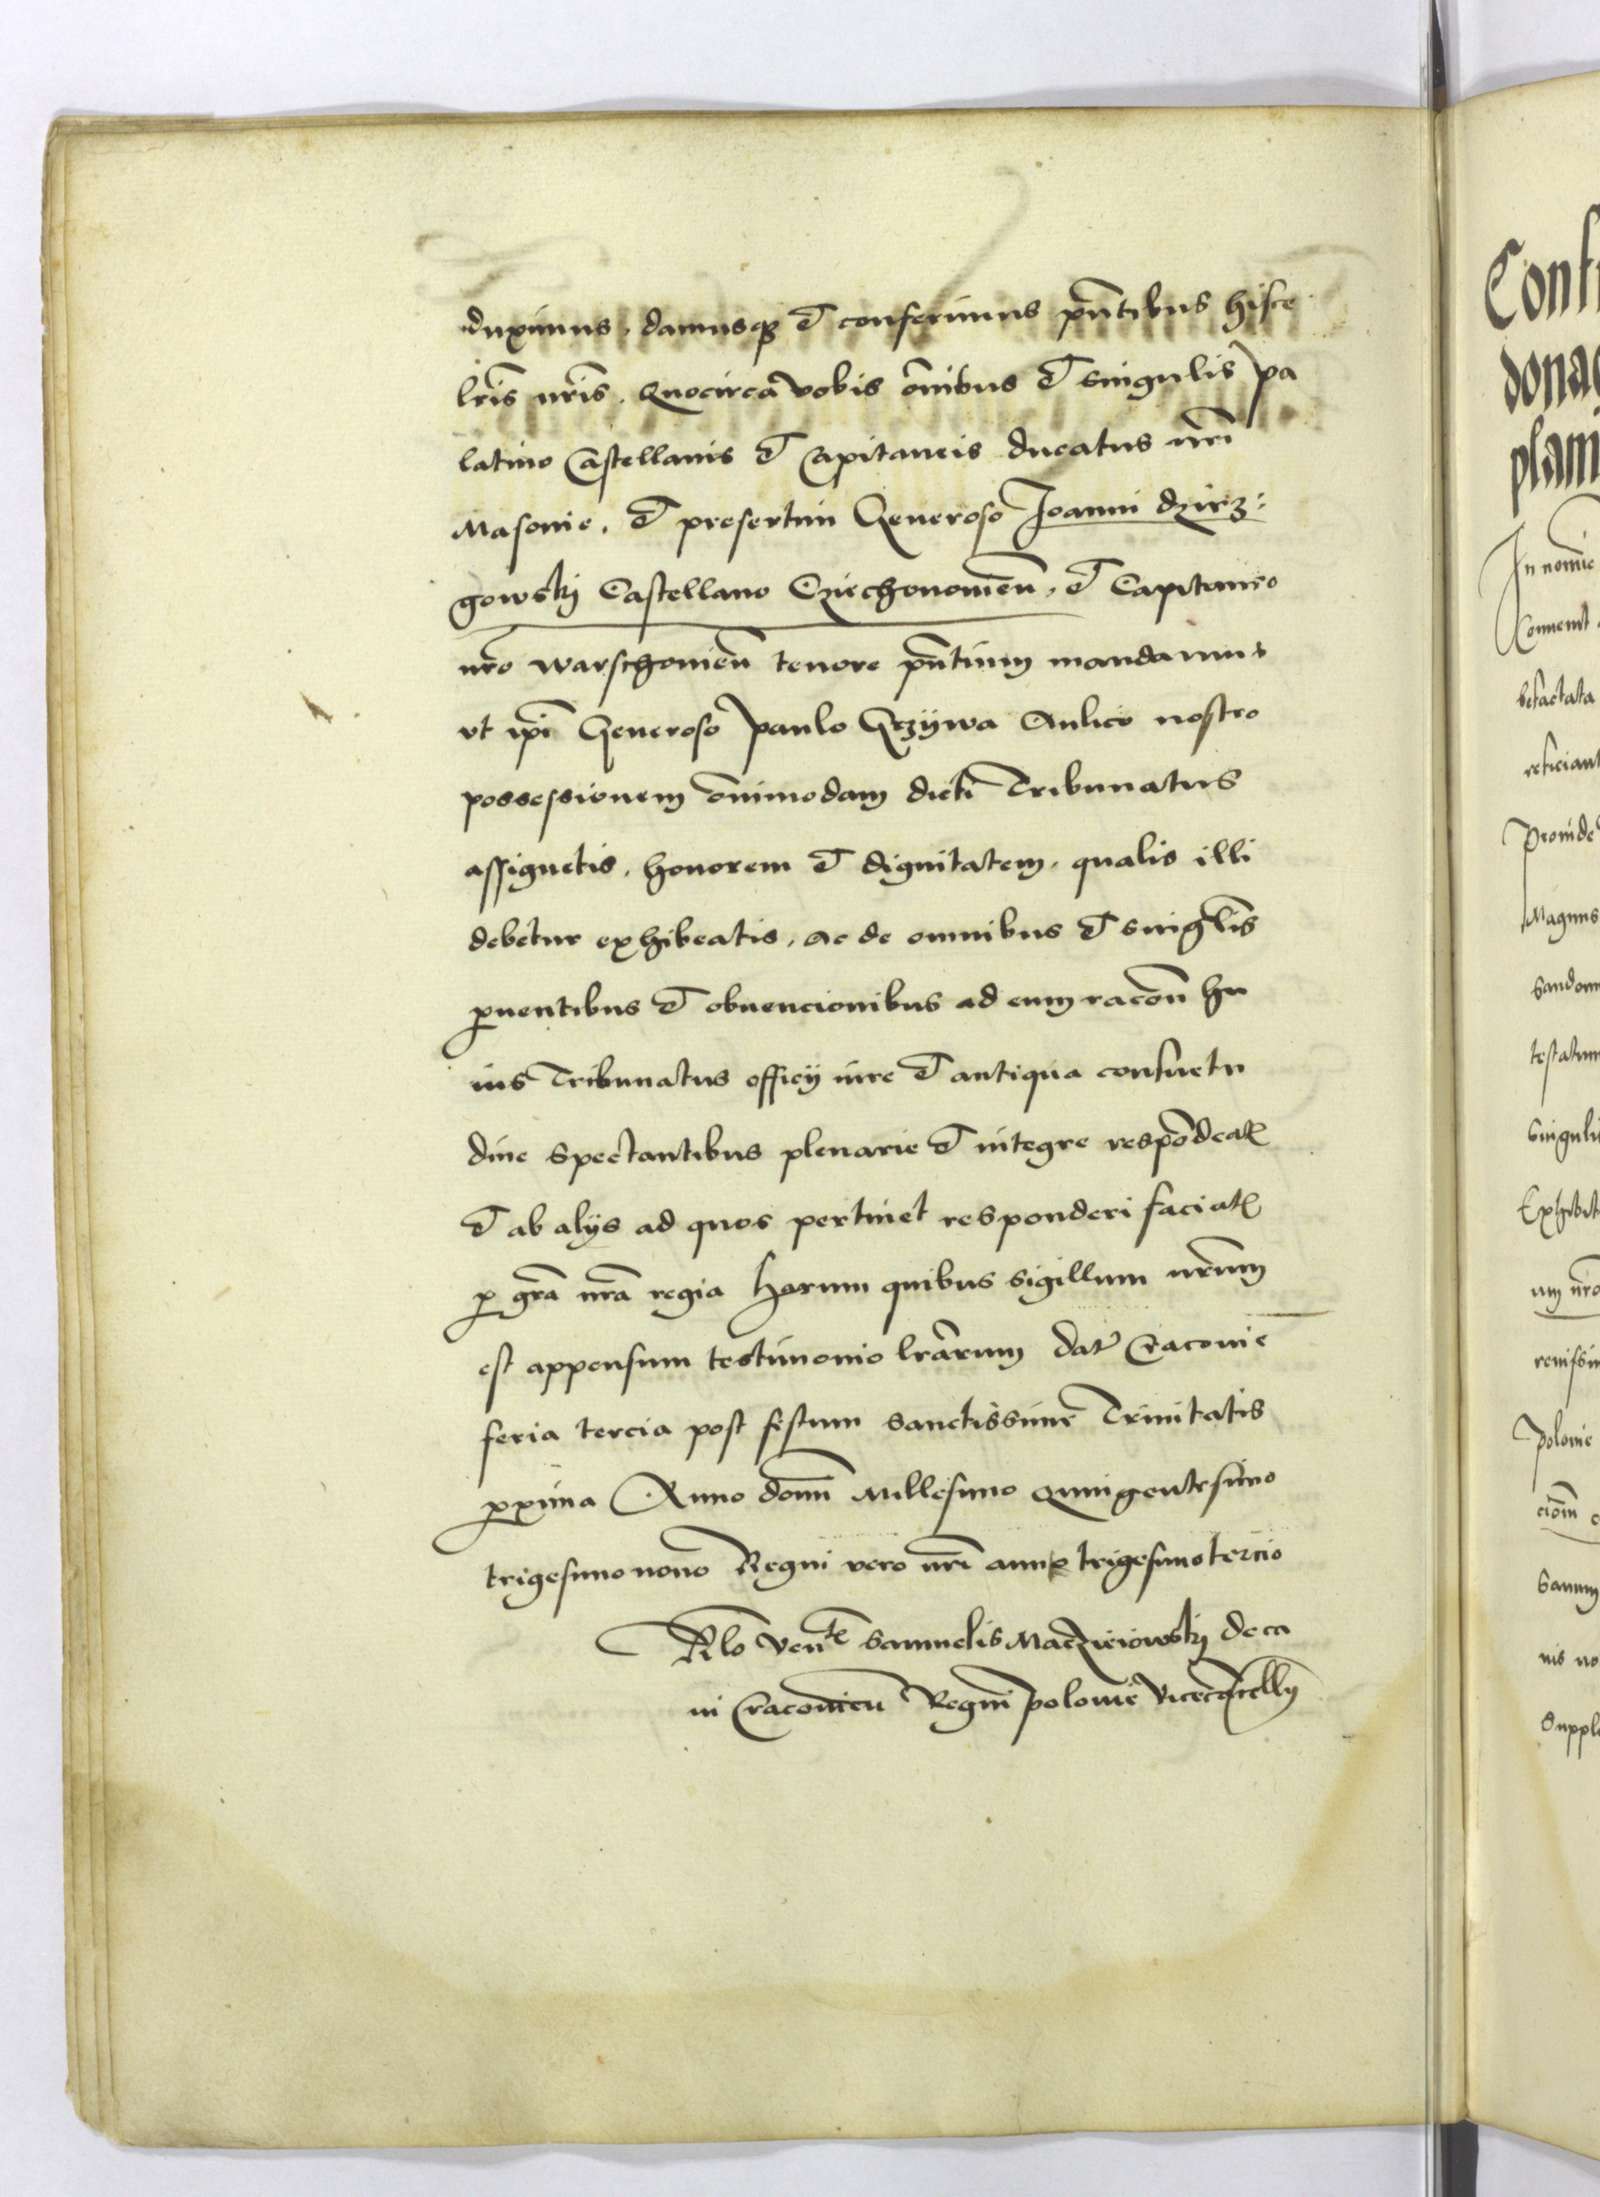 duximus, damusq̃ et conferimus pñtibus hisce
lr̃is nr̃is. Quocirca vobis õnibus et singulis pa
latino Castellanis et Capitaneis ducatus nr̃i
Masouie, et presertim Generoso Joanni dzirz:
gowskij Castellano Cziechonouieñ, et Capitaneo
nr̃o warschouieñ tenore pñtium mandamus
vt ip̃i Generoso Paulo Grzÿwa Aulico nostro
possessionem õnimodam dicti Tribunatus
assignetis, honorem et dignitatem, qualis illi
debetur exhibeatis, ac de omnibus et singl̃is
ꝓuentibus et obuencionibus ad eum racoñ hu
ius Tribunatus officij iure et antiqua consuetu
dine spectantibus plenarie et integre respõdeat̃
et ab alijs ad quos pertinet responderi faciat̃
ꝓ gr̃a nr̃a regia Harum quibus sigillum nr̃um
est appensum testimonio lr̃arum Dat̃ Cracouie
feria tercia post festum sanctissime Trinitatis
ꝓxima Anno dom̃ Millesimo Quingentesimo
trigesimo nono Regni vero nr̃i anno trigesimo tercio
Rl̃o Ven̄le Samuelis Macziejowskij deca
ni Cracouień Regni Polonie Vicecãcellij
Confi
donac
plani
In nomie
Conuenit
refaciant
Proinde
Magnus
Sandom
testatum
Singuli
Exhibit
um nr̃o
Polonie
cioñ
Sanum
nis no
Suppl